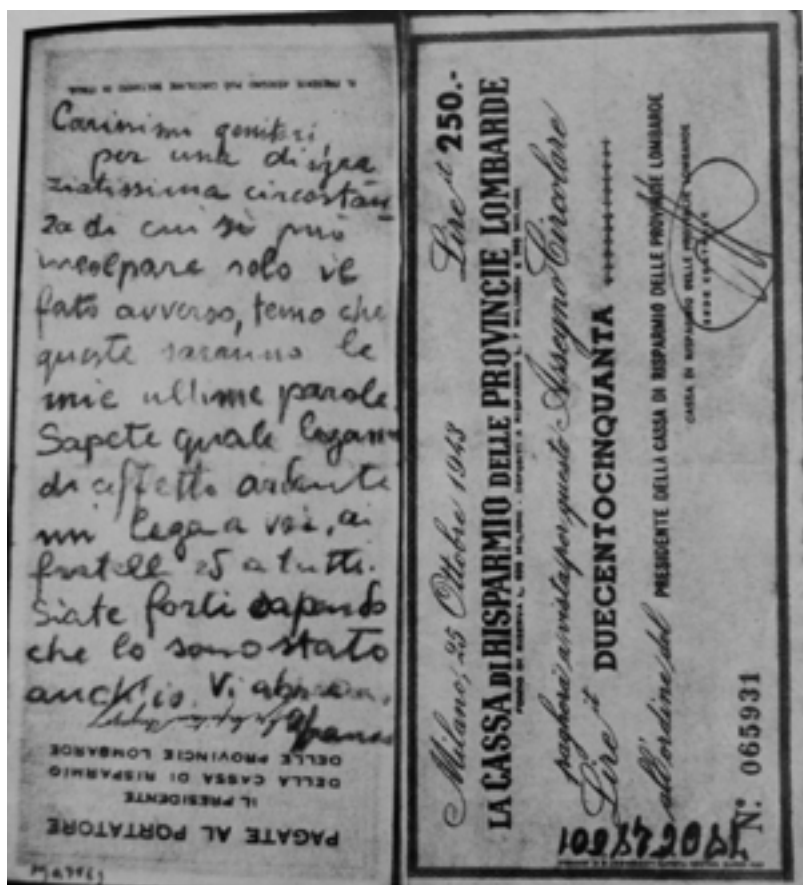 IL PRESENTE ASSEGNO PUÒ CIRCOLARE SOLTANTO IN ITALIA
Carissimi genitori
per una disgra
ziatissima circostan
za di cui si può
incolpare solo il
fato avverso, temo che
queste saranno le
mie ultime parole.
Sapete quale legame
di affetto ardente
mi lega a voi, ai
fratelli e a tutti.
Siate forti sapendo
che lo sono stato
anch'io. Vi abbraccio
DELLE PROVINCIE LOMBARDE
DELLA CASSA DI RISPARMIO
IL PRESIDENTE
PAGATE AL PORTATORE
Milano, 25 Ottobre 1943 Lire it 250.-
LA CASSA DI RISPARMIO DELLE PROVINCIE LOMBARDE
pagherà a vista per questo Assegno Circolare
Lire it DUECENTOCINQUANTA
all'ordine del PRESIDENTE DELLA CASSA DI RISPARMIO DELLE PROVINCIE LOMBARDE
CASSA DI RISPARMIO DELLE PROVINCIE LOMBARDE
SEDE CENTRALE
N° 065931